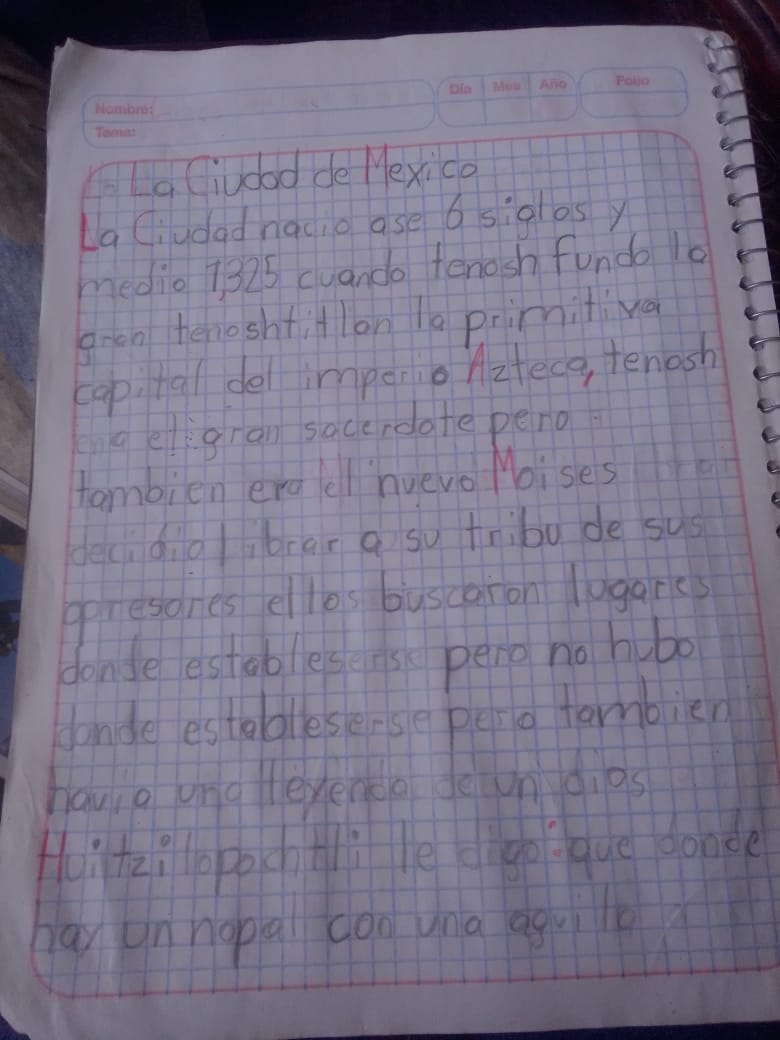 Nombre:
Tema:
Día Mes Año
Folio
La Ciudad de Mexico
La Ciudad nacio ase 6 siglos y
medio 1,325 cuando tenosh fundo la
gran tenoshtitlan la primitiva
capital del imperio Azteca, tenosh
el gran sacerdote pero
tambien era el nuevo Moises
decidio librar a su tribu de sus
opresores ellos buscaron lugares
donde estableserse pero no hubo
donde estableserse pero tambien
havia una leyenda de un dios
Huitzilopochtli le digo: que donde
hay un nopal con una aguila